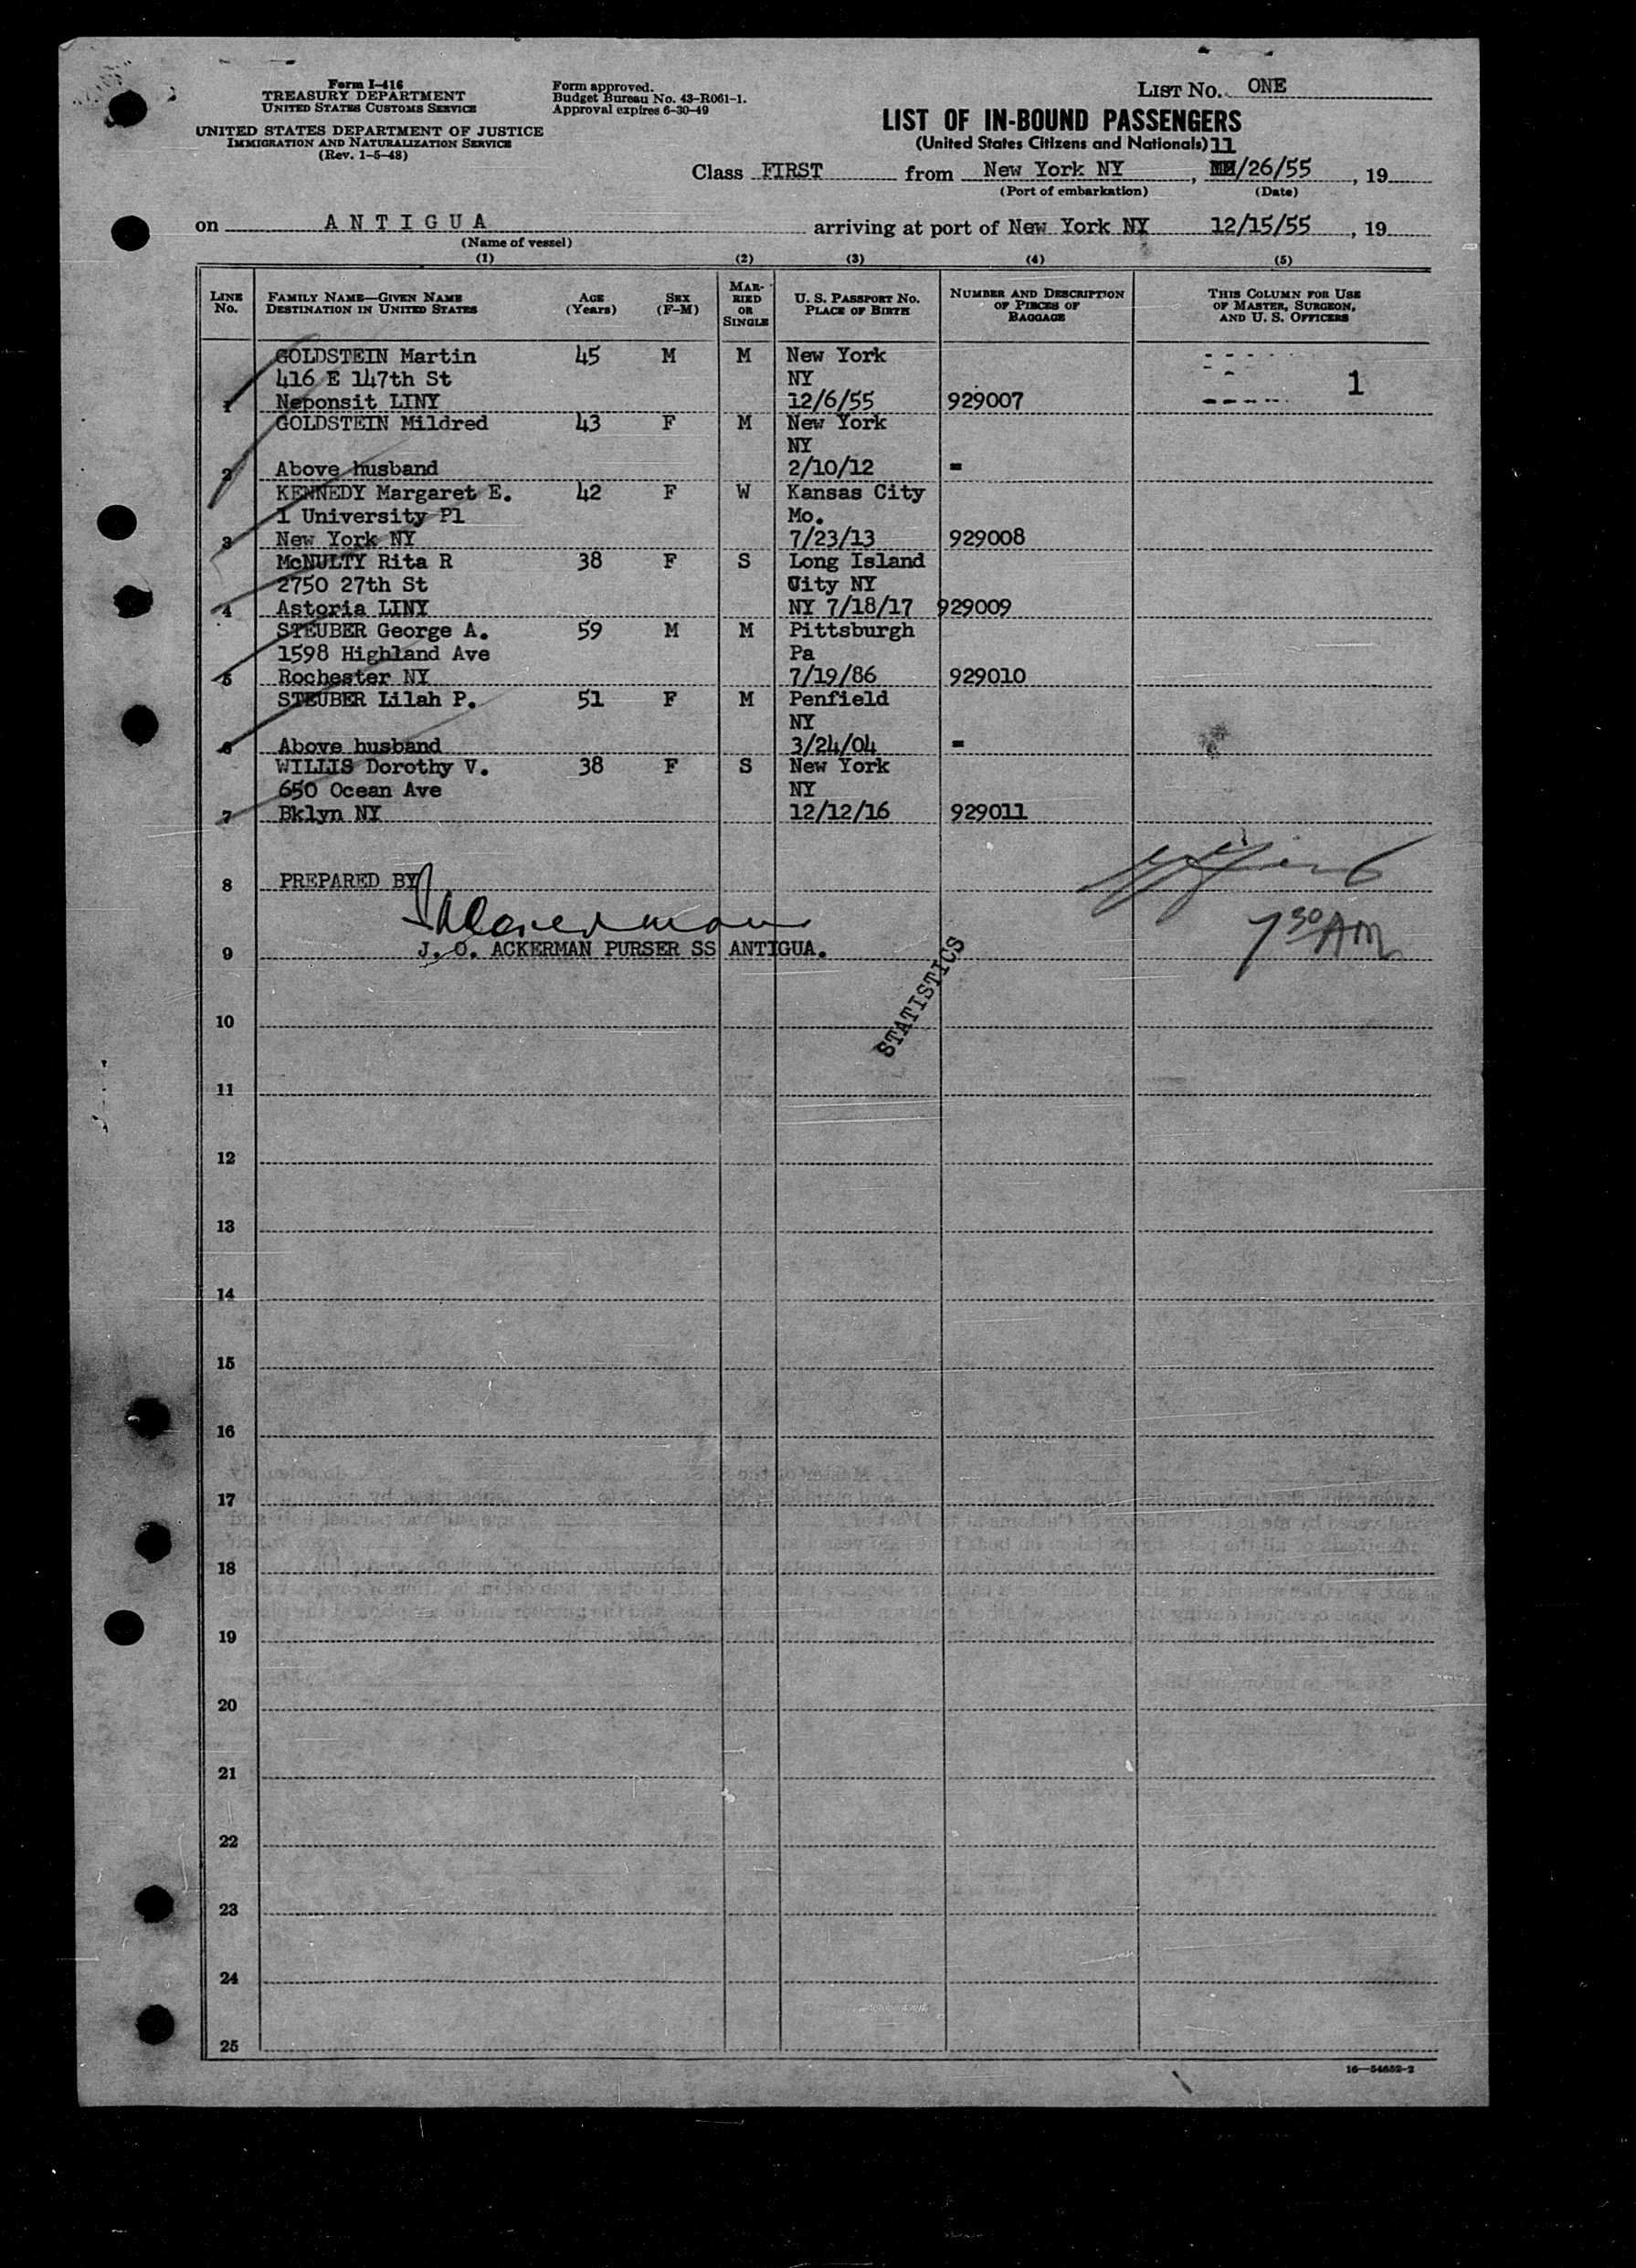 Form I-416
TREASURY DEPARTMENT
UNITED STATES CUSTOMS SERVICE
UNITED STATES DEPARTMENT OF JUSTICE
IMMIGRATION AND NATURALIZATION SERVICE
(Rev. 1-5-48)
Form approved.
Budget Bureau No. 43-R061-1.
Approval expires 6-30-49
LIST No. ONE
LIST OF IN-BOUND PASSENGERS
(United States Citizens and Nationals) 11
Class FIRST from New York NY , /26/55 , 19
(Port of embarkation) (Date)
on A N T I G U A arriving at port of New York NY 12/15/55 , 19
(Name of vessel)
(1) (2) (3) (4) (5)
LINE No. FAMILY NAME—GIVEN NAME DESTINATION IN UNITED STATES AGE (Years) SEX (F-M) MARRIED OR SINGLE U. S. PASSPORT No. PLACE OF BIRTH NUMBER AND DESCRIPTION OF PIECES OF BAGGAGE THIS COLUMN FOR USE OF MASTER, SURGEON, AND U. S. OFFICERS
GOLDSTEIN Martin 45 M M New York
416 E 147th St NY 1
1 Neponsit LINY 12/6/55 929007
GOLDSTEIN Mildred 43 F M New York
NY
2 Above husband 2/10/12 =
KENNEDY Margaret E. 42 F W Kansas City
1 University Pl Mo.
3 New York NY 7/23/13 929008
McNULTY Rita R 38 F S Long Island
2750 27th St City NY
4 Astoria LINY NY 7/18/17 929009
STEUBER George A. 59 M M Pittsburgh
1598 Highland Ave Pa
5 Rochester NY 7/19/86 929010
STEUBER Lilah P. 51 F M Penfield
NY
6 Above husband 3/24/04 =
WILLIS Dorothy V. 38 F S New York
650 Ocean Ave NY
7 Bklyn NY 12/12/16 929011
8 PREPARED BY
7 30 AM
9 J. O. ACKERMAN PURSER SS ANTIGUA.
STATISTICS
10
11
12
13
14
15
16
17
18
19
20
21
22
23
24
25
16—54652-2